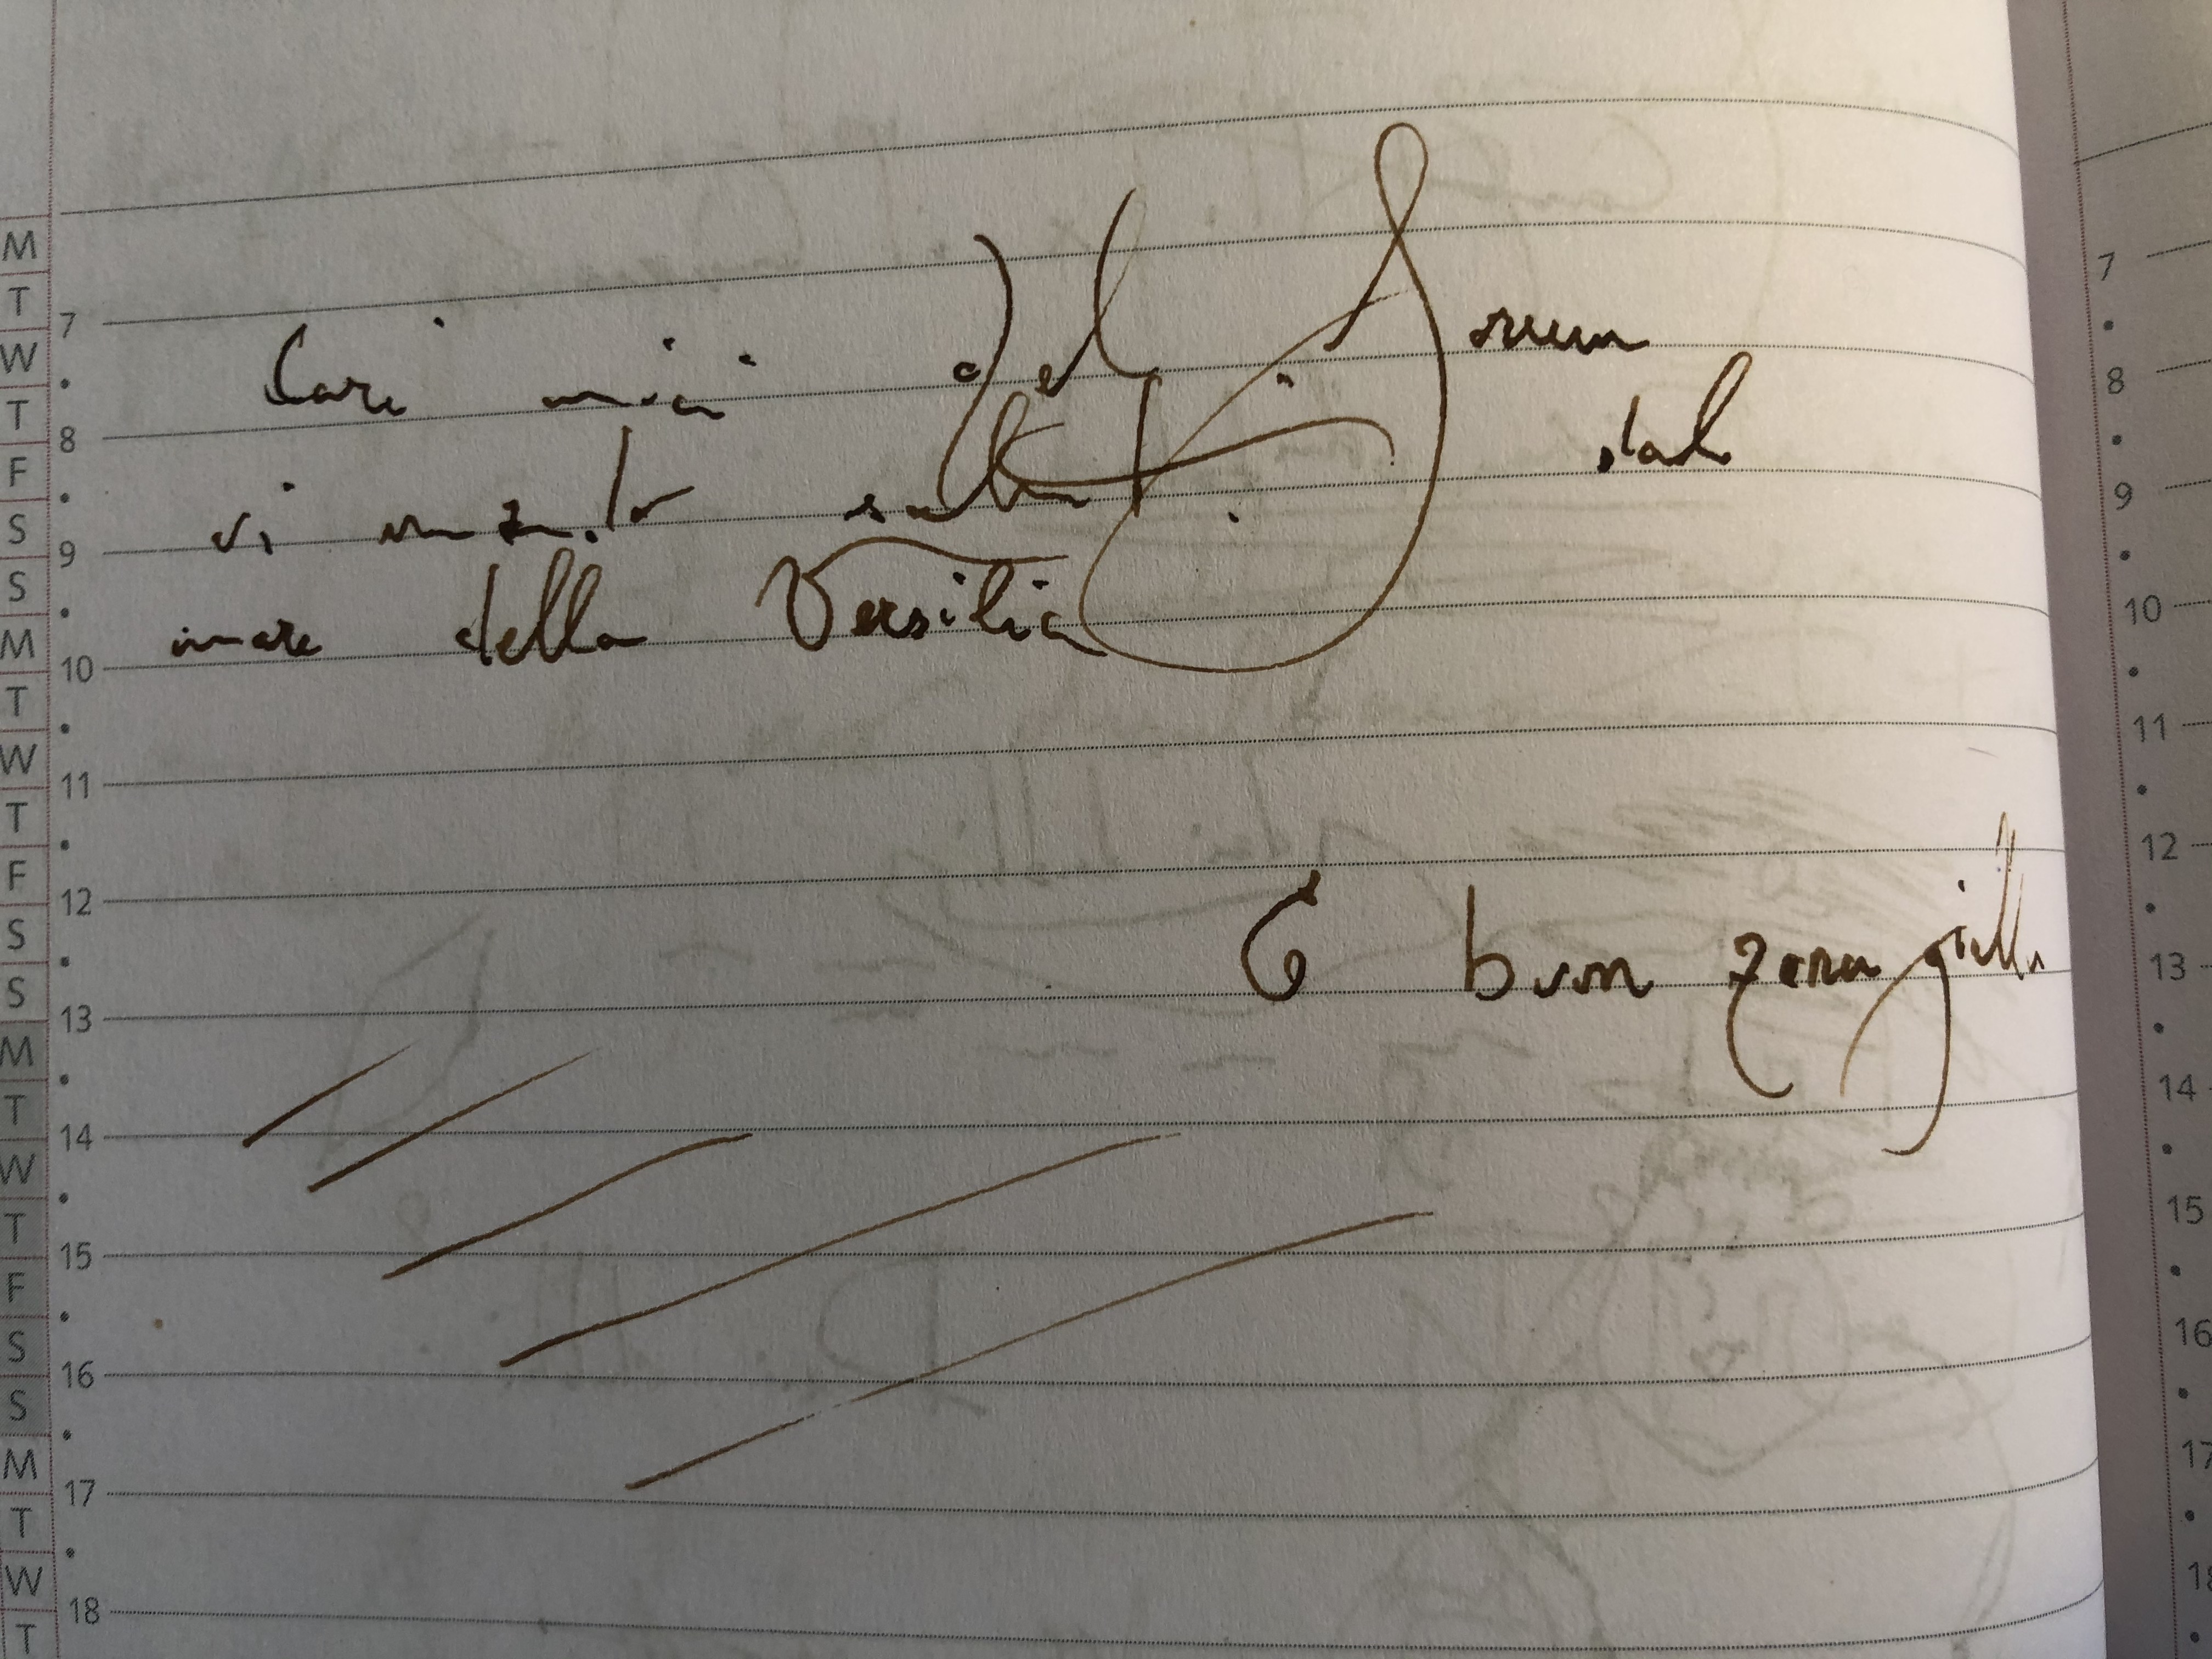 Cari amici del Forum
vi mando saluti dal
mare della Versilia
E buon zona gialla
M
T
W
T
F
S
S
M
T
W
T
F
S
S
M
T
W
T
F
S
M
T
W
T
7
8
9
10
11
12
13
14
15
16
17
18
7
8
9
10
11
12
13
14
15
16
17
18